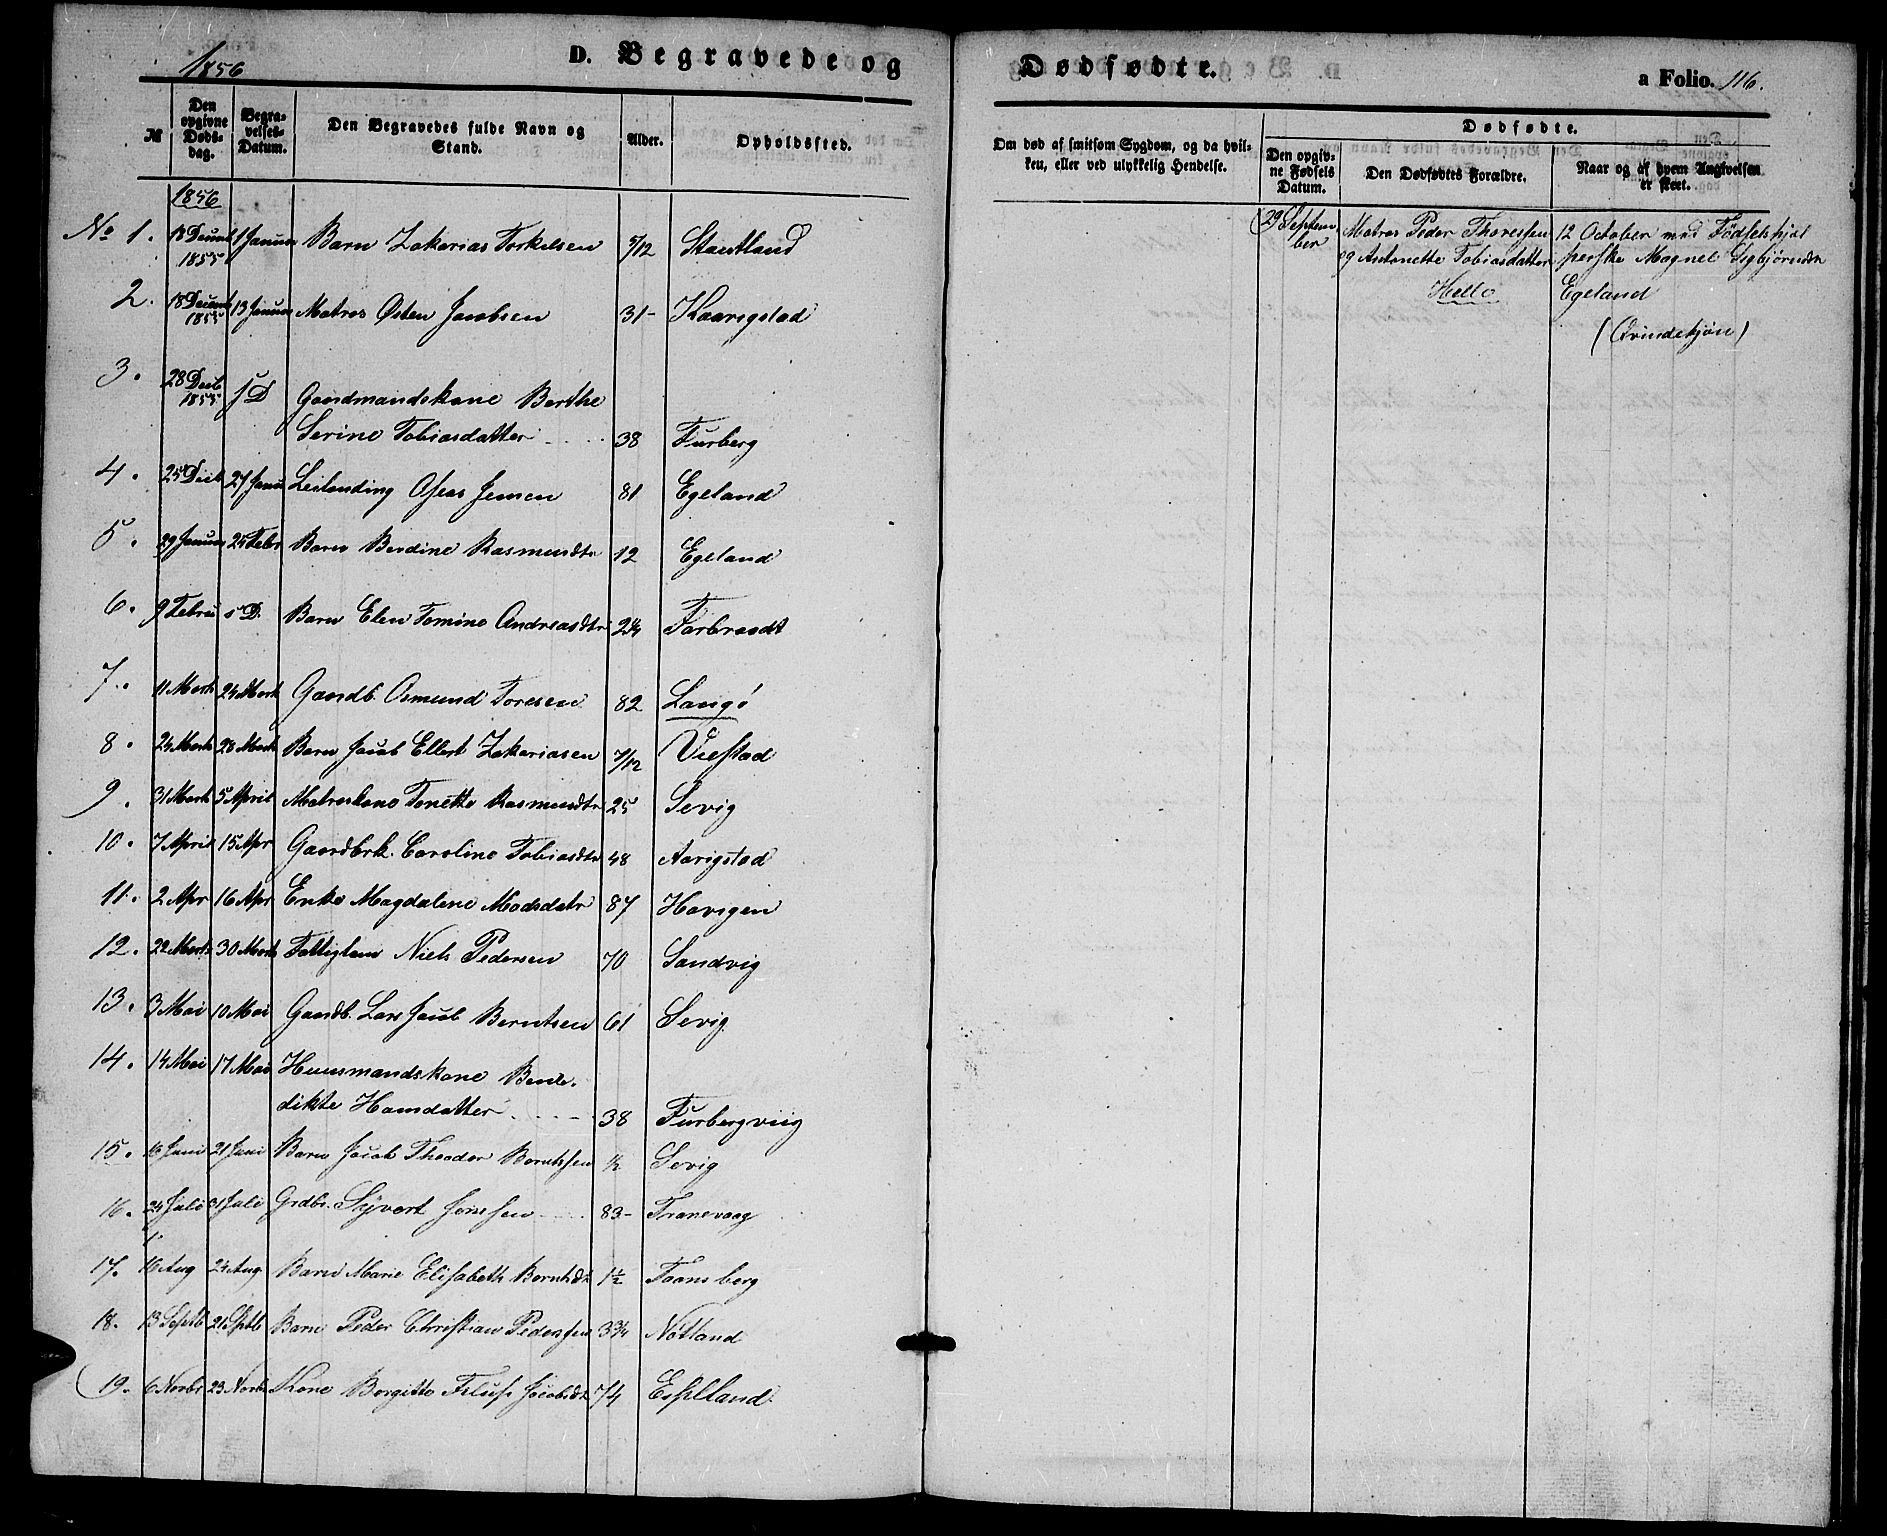 1856
D. Begravede og Dødfødte.
a Folio. 116.
№
Den opgivne Døds-dag.
Begra-velses-Datum.
Den Begravedes fulde Navn og Stand.
Alder.
Opholdssted.
Om død af smitsom Sygdom, og da hvil-ken, eller ved ulykkelig Hendelse.
Dødfødte.
Den opgiv-ne Fødsels Datum.
Den Dødfødtes Forældre.
Naar og af hvem Angivelsen er skeet.
1856
No 1. 18 Decmb 1855 1 Januar Barn Zakarias Torkelsen 5/12 Stautland
2. 18 Decmb 1855 13 Januar Matros Østen Jacobsen 31- Kaarigstad
3. 28 Decb 1855 s D Gaardmandskone Berthe
Serine Tobiasdatter 38 Furberg
4. 25 Decb 27 Janu Leilending Oseas Jensen 81 Egeland
5. 29 Januar 24 Febr Barn Berdine Rasmusdtr 12 Egeland
6. 9 Febru s D. Barn Elen Tomine Andreasdtr 2¼ Farbrodt
7. 11 Marts 24 Marts Gaardb. Osmund Toresen 82 Langø
8. 24 Marts 28 Marts Barn Jacob Ellert Zakariasen 7/12 Viestad
9. 31 Marts 5 April Matroskone Tonette Rasmusdtr 25 Sevig
10. 7 April 15 Apr Gaardbrk. Caroline Tobiasdtr 48 Aarigstad
11. 2 Apr 16 Apr Enke Magdalene Madsdatr 87 Havigen
12. 22 Marts 30 Marts Fattiglem Niels Pedersen 70 Sandvig
13. 3 Mai 10 Mai Gaardb. Lars Jacob Berntsen 61 Sevig
14. 14 Mai 17 Mai Huusmandskone Bene-
dikte Hansdatter 38 Furbergviig
15. 16 Juni 21 Juni Barn Jacob Theodor Berntssen ½ Sevig
16. 24 Juli 31 Juli Grdbr. Syvert Jonssen 83- Tranevaag
17. 16 Aug 24 Aug Barn Marie Elisabeth Berntsdt 1½ Faansberg
18. 13 Septb 21 Septb Barn Peder Christian Pederssen 3¾ Nötland
19. 6 Novbr 23 Novb Kone Borgitte Jacobsdt 74 Espelland
29 Septem-
ber
Matros Peder Thoressen
og Antonette Tobiasdatter
Helle
12 October med Fødselshjel
perske Magnel Sigbjørnsdtr
Egeland
(Qvindekjøn)